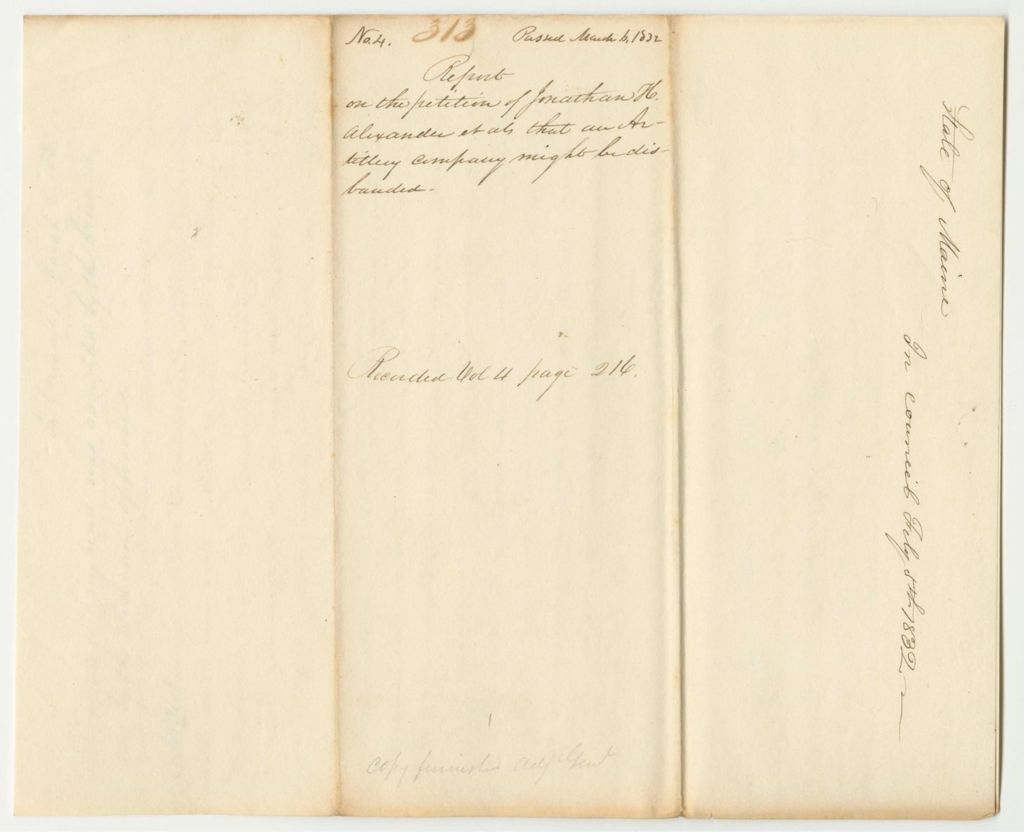 No. 4. 313 Passed March 6, 1832
Report
on the petition of Jonathan H.
Alexander et als that an Ar-
tillery company might be dis-
banded.
Recorded Vol 4 page 216.
copy furnished Adjt Genl
State of Maine
In council Feby 8th 1832